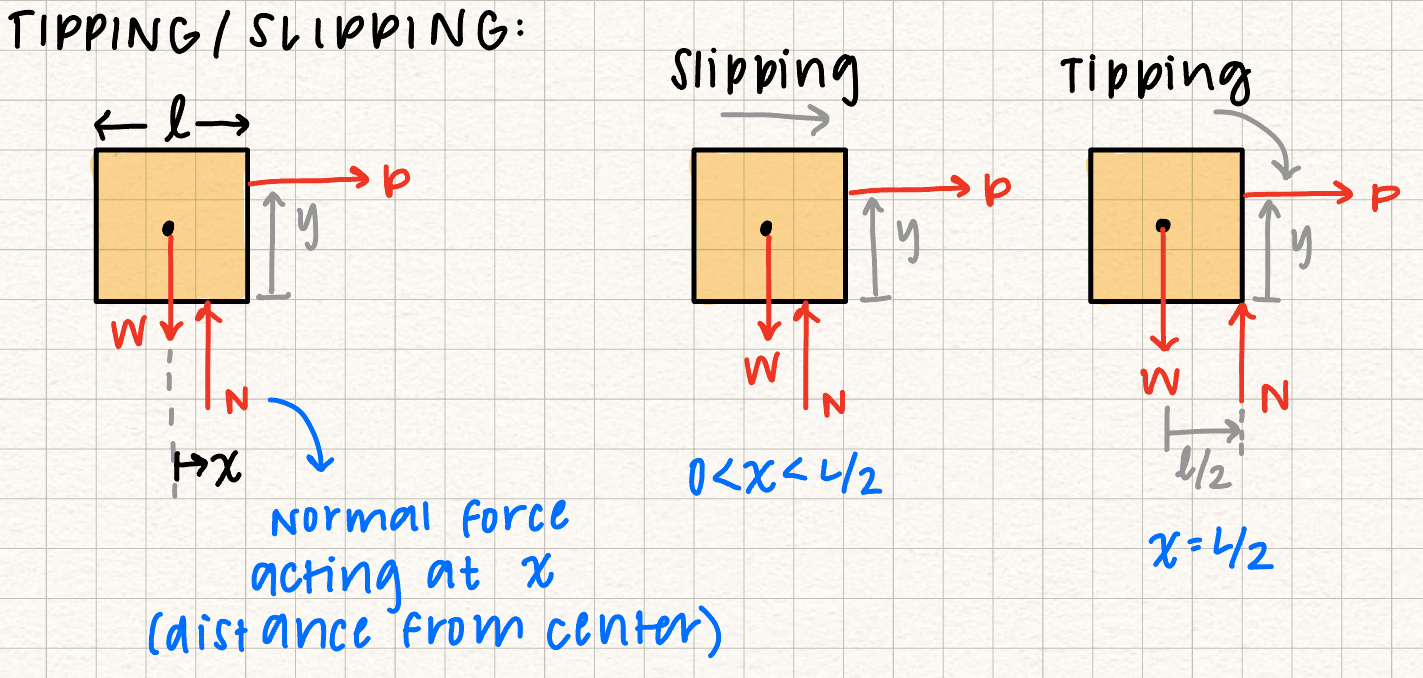 TIPPING/SLIPPING:
l
P
y
W
N
x
Normal force
acting at x
(distance from center)
Slipping
P
y
W
N
0<x<L/2
Tipping
P
y
W
N
l/2
x=L/2